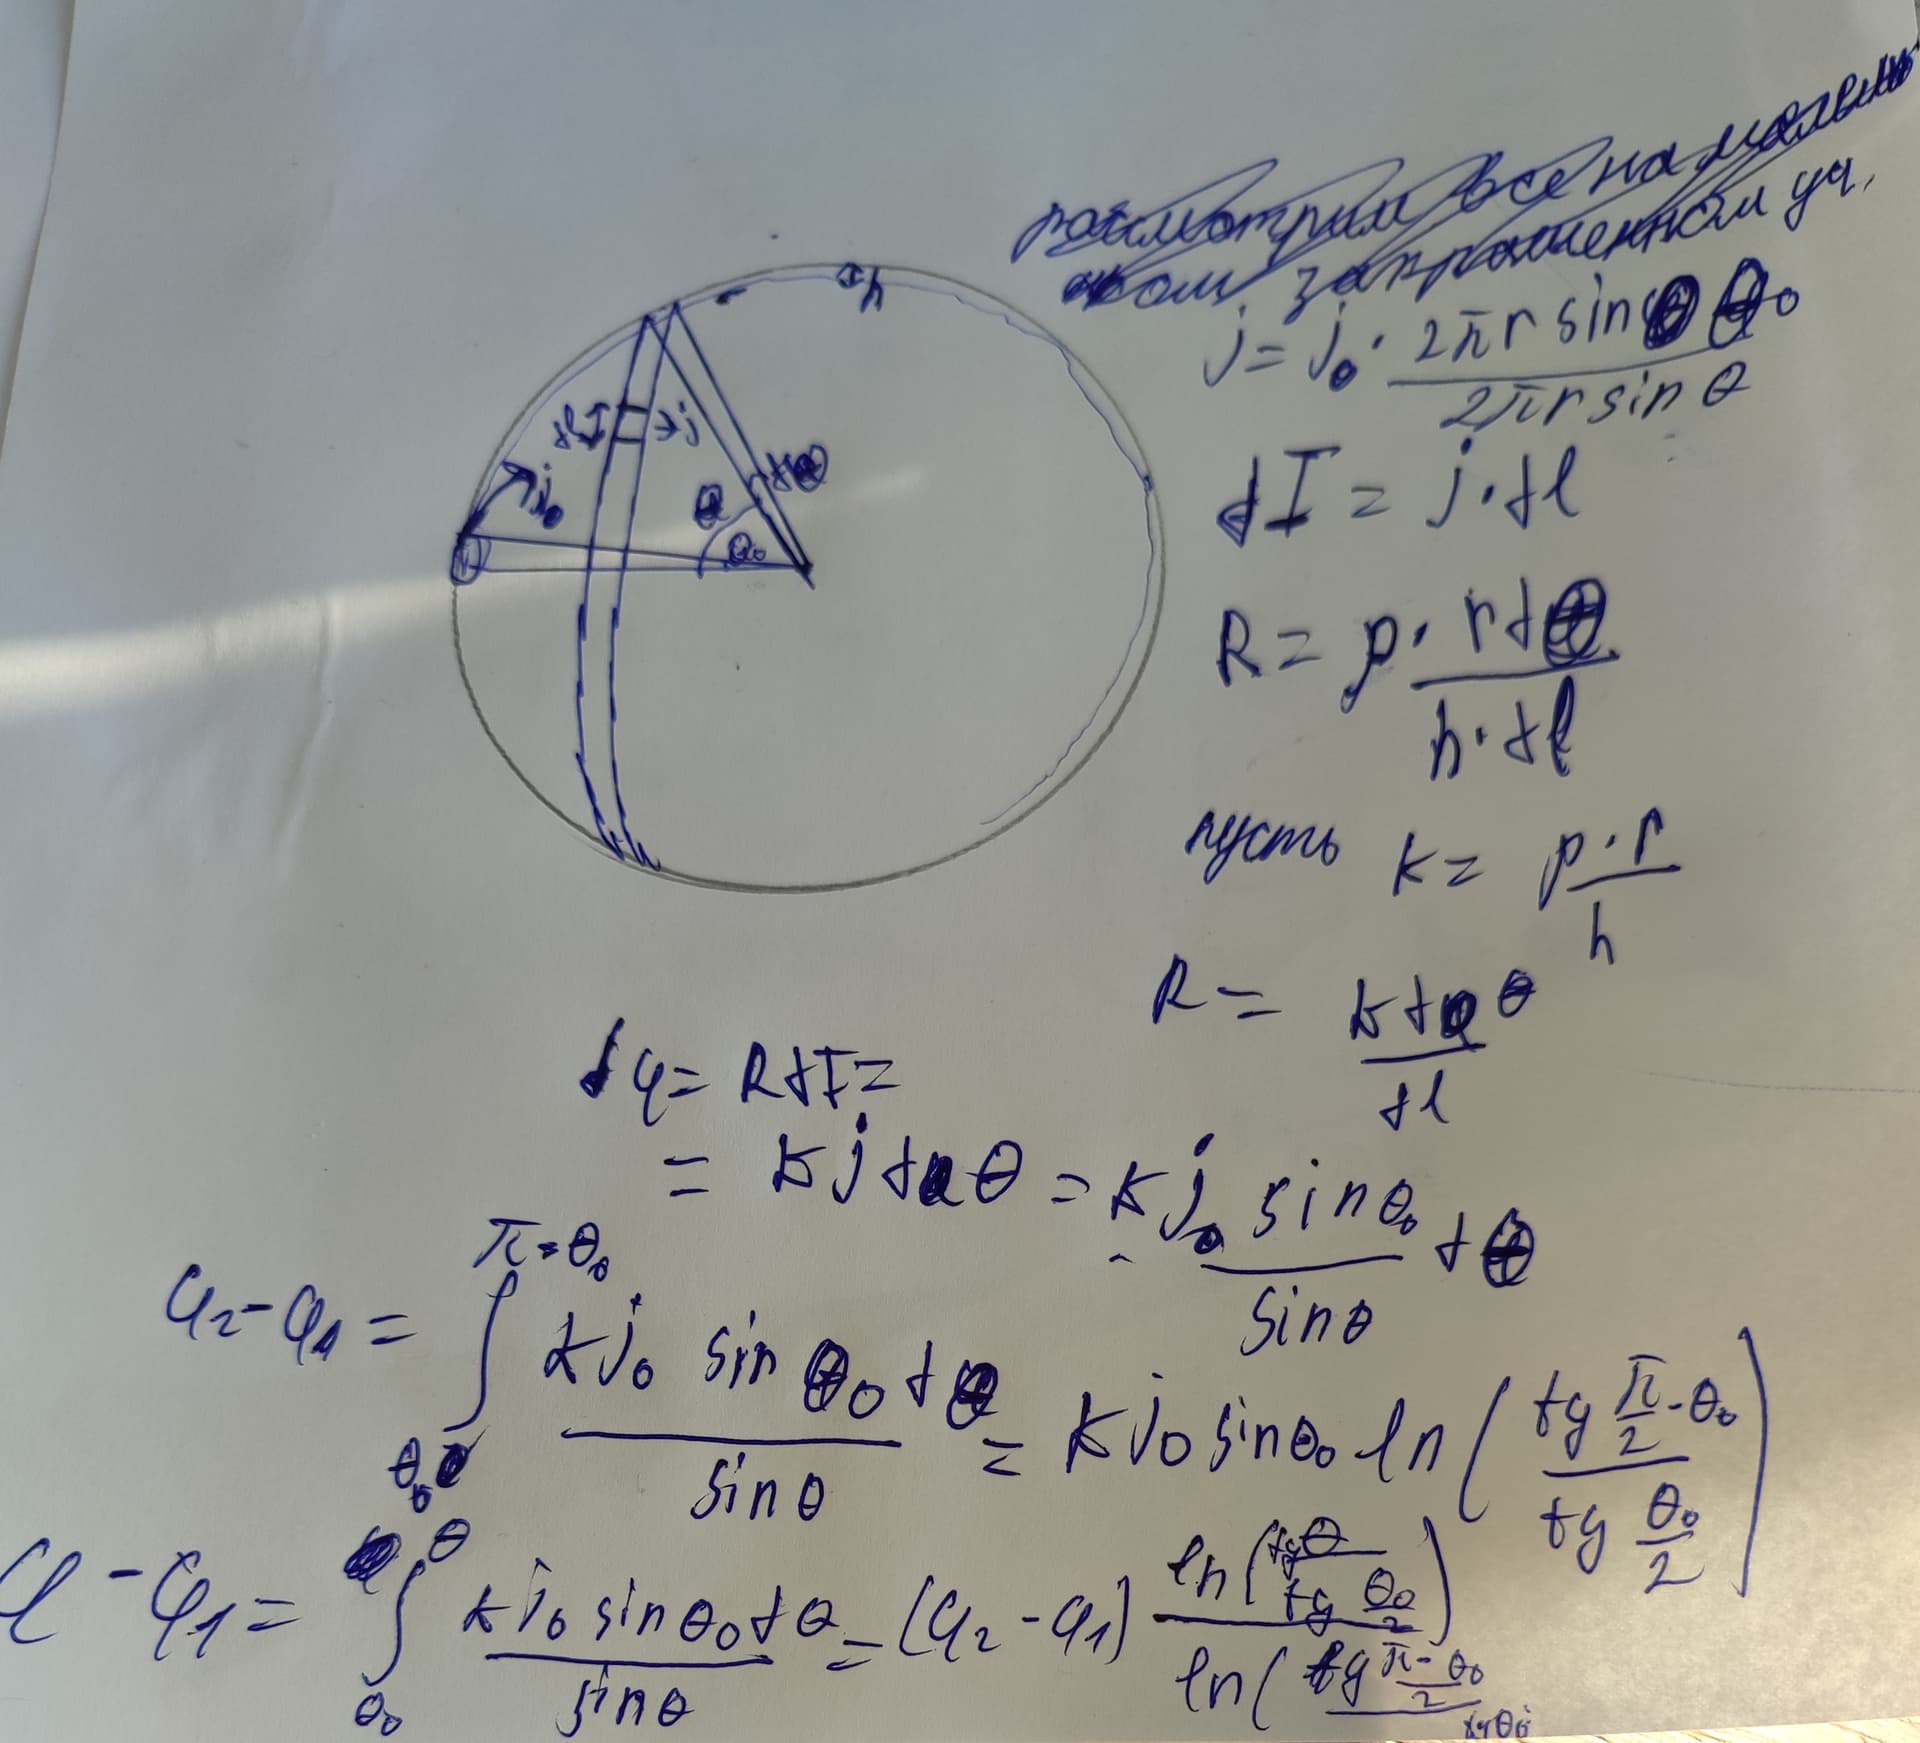 рассмотрим все на малень
ком закрашенном уч.
h
j = j₀ · 2πr sin θ₀ / 2πr sin θ
dl
j
dθ
j₀
θ
θ₀
dI = j · dl
R = ρ · r dθ / h · dl
пусть k = ρ · r / h
R = k dθ / dl
dφ = R dI =
= k j dθ = k j₀ sin θ₀ / sin θ dθ
φ₂ - φ₁ = ∫_{θ₀}^{π-θ₀} k j₀ sin θ₀ dθ / sin θ = k j₀ sin θ₀ ln ( tg π/2 - θ₀ / tg θ₀/2 )
φ - φ₁ = ∫_{θ₀}^{θ} k j₀ sin θ₀ dθ / sin θ = (φ₂ - φ₁) ln ( tg θ / tg θ₀/2 ) / ln ( tg π-θ₀/2 / tg θ₀